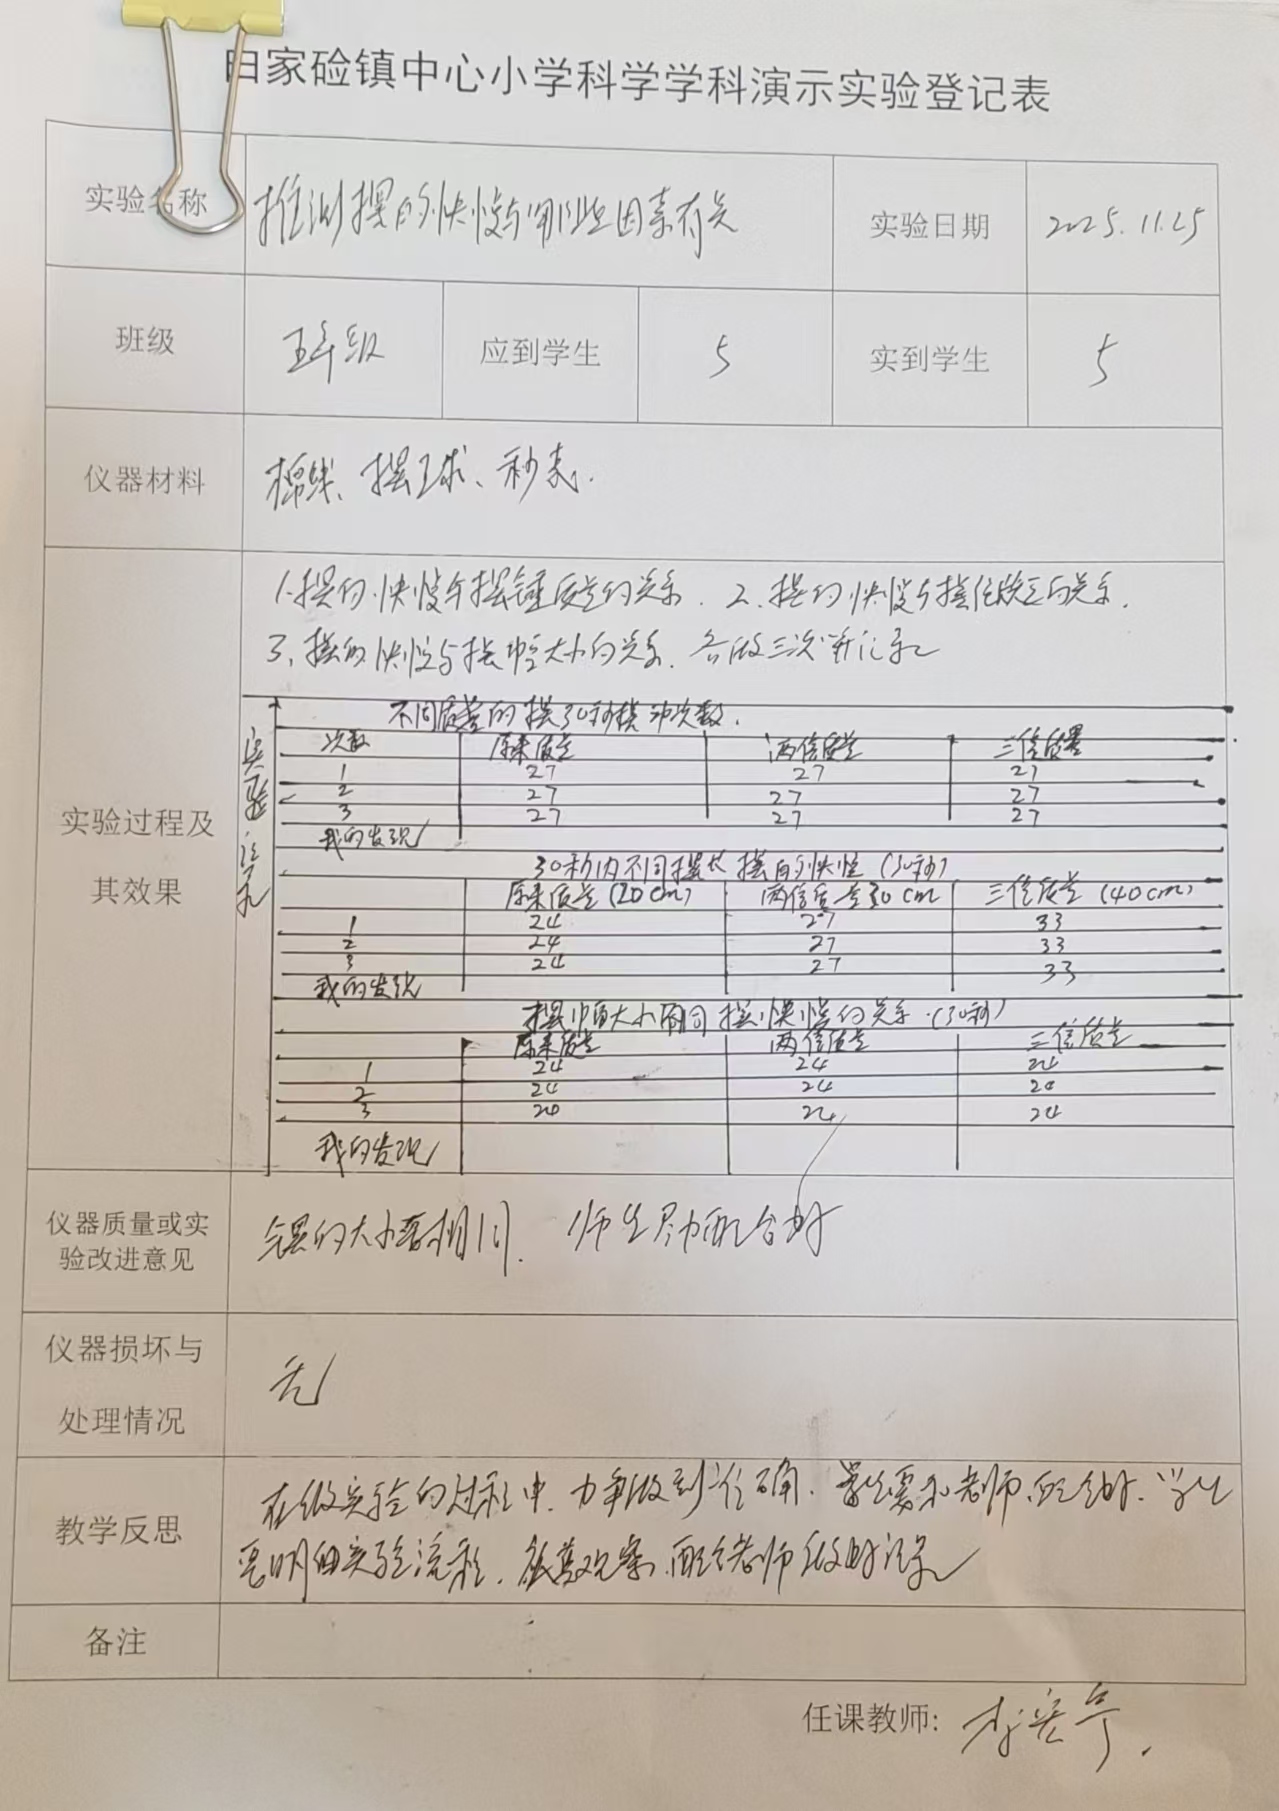 田家硷镇中心小学科学学科演示实验登记表
实验名称 推测摆的快慢与哪些因素有关 实验日期 2025.11.25
班级 五年级 应到学生 5 实到学生 5
仪器材料 棉线、摆球、秒表.
1.摆的快慢与摆锤质量的关系. 2.摆的快慢与摆
3.摆的快慢与摆幅大小的关系. 各做三次并记录
实验过程及其效果
实验记录
不同质量的摆30秒摆动次数.
次数 原来质量 两倍质量 三倍质量
1 27 27 27
2 27 27 27
3 27 27 27
我的发现
30秒内不同摆长摆的快慢(30秒)
原来质量(20cm) 两倍质量30cm 三倍质量(40cm)
1 24 27 33
2 24 27 33
3 24 27 33
我的发现
摆幅大小 摆快慢的关系.(30秒)
原来质量 两倍质量 三倍质量
1 24 24 24
2 24 24 24
3 24 24 24
我的发现
仪器质量或实验改进意见 的大小要相同. 师生 配合好
仪器损坏与处理情况 无
在做实验的过程中,力争做到准确. 学生要和老师配合好.学生
教学反思
要明白实验流程,认真观察,配合老师做好记录
备注
任课教师: 李